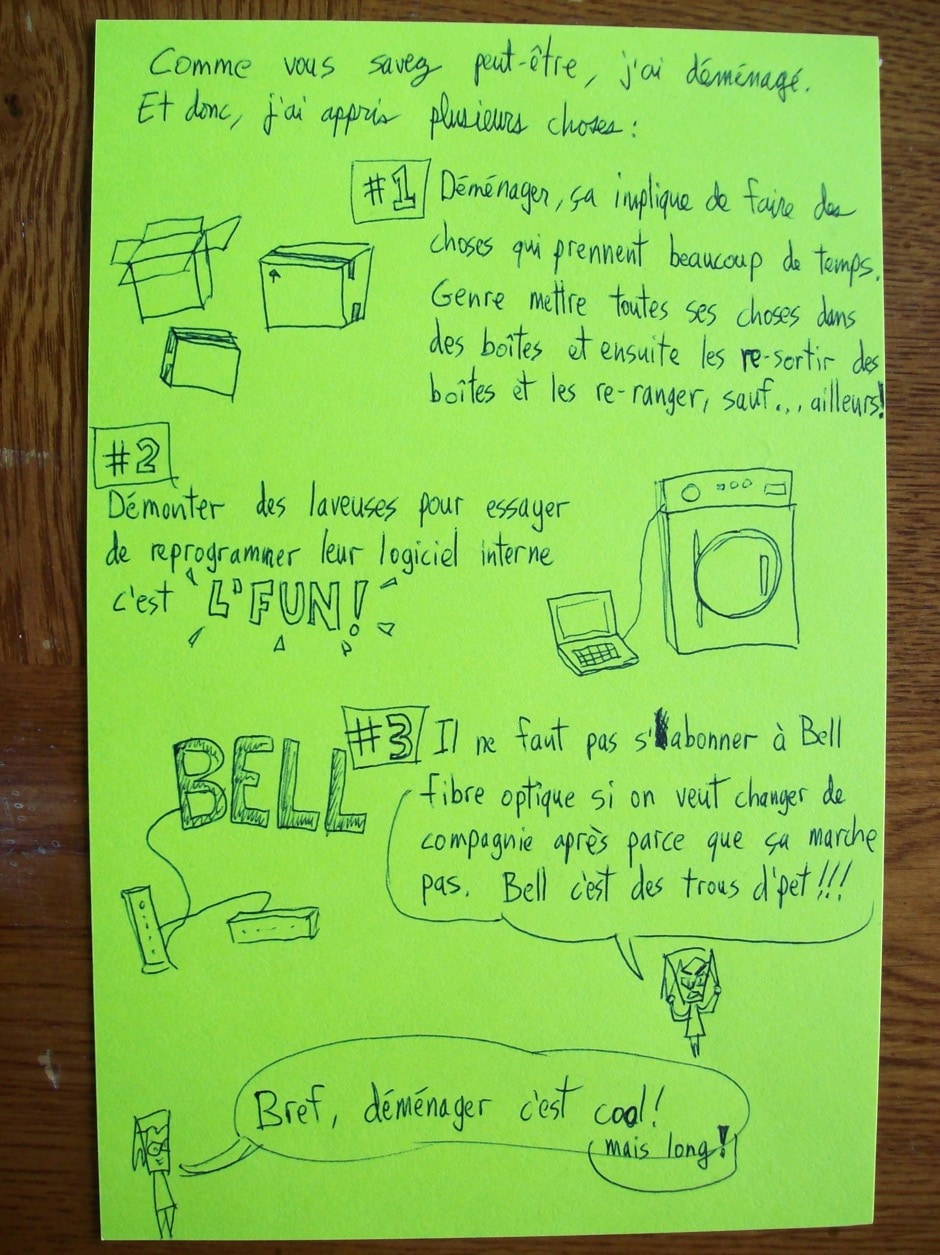 Comme vous savez peut-être, j'ai déménagé.
Et donc, j'ai appris plusieurs choses :
#1
Déménager, ça implique de faire des
choses qui prennent beaucoup de temps.
Genre mettre toutes ses choses dans
des boîtes et ensuite les re-sortir des
boîtes et les re-ranger, sauf... ailleurs!
#2
Démonter des laveuses pour essayer
de reprogrammer leur logiciel interne
c'est L'FUN!
BELL
#3
Il ne faut pas s'abonner à Bell
fibre optique si on veut changer de
compagnie après parce que ça marche
pas. Bell c'est des trous d'pet!!!
Bref, déménager c'est cool!
mais long!